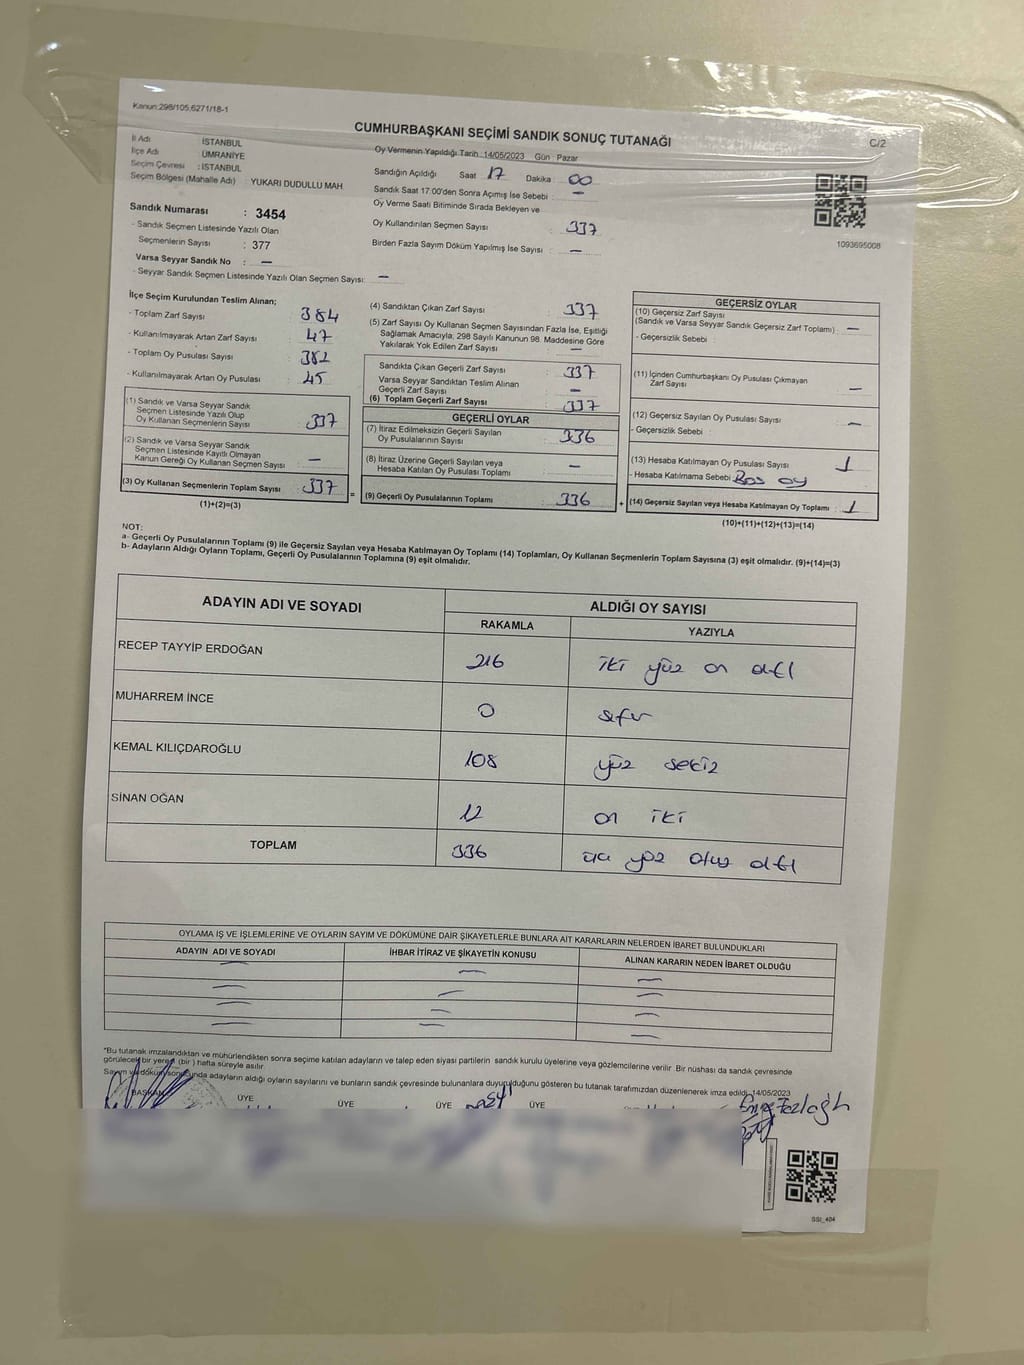 Kanun:298/105,6271/18-1
CUMHURBAŞKANI SEÇİMİ SANDIK SONUÇ TUTANAĞI
C/2
İl Adı : İSTANBUL
İlçe Adı : ÜMRANİYE
Seçim Çevresi : İSTANBUL
Seçim Bölgesi (Mahalle Adı) : YUKARI DUDULLU MAH.
Sandık Numarası : 3454
- Sandık Seçmen Listesinde Yazılı Olan
Seçmenlerin Sayısı : 377
Varsa Seyyar Sandık No : —
- Seyyar Sandık Seçmen Listesinde Yazılı Olan Seçmen Sayısı: —
Oy Vermenin Yapıldığı Tarih :14/05/2023 Gün : Pazar
Sandığın Açıldığı Saat : 17 Dakika : 00
Sandık Saat 17:00'den Sonra Açımış İse Sebebi : —
Oy Verme Saati Bitiminde Sırada Bekleyen ve
Oy Kullandırılan Seçmen Sayısı : 337
Birden Fazla Sayım Döküm Yapılmış İse Sayısı : —
1093695008
İlçe Seçim Kurulundan Teslim Alınan;
- Toplam Zarf Sayısı : 384
- Kullanılmayarak Artan Zarf Sayısı : 47
- Toplam Oy Pusulası Sayısı : 382
- Kullanılmayarak Artan Oy Pusulası : 45
(1) Sandık ve Varsa Seyyar Sandık
Seçmen Listesinde Yazılı Olup
Oy Kullanan Seçmenlerin Sayısı : 337
(2) Sandık ve Varsa Seyyar Sandık
Seçmen Listesinde Kayıtlı Olmayan
Kanun Gereği Oy Kullanan Seçmen Sayısı : —
(3) Oy Kullanan Seçmenlerin Toplam Sayısı : 337 =
(1)+(2)=(3)
(4) Sandıktan Çıkan Zarf Sayısı : 337
(5) Zarf Sayısı Oy Kullanan Seçmen Sayısından Fazla İse, Eşitliği
Sağlamak Amacıyla, 298 Sayılı Kanunun 98. Maddesine Göre
Yakılarak Yok Edilen Zarf Sayısı : —
Sandıkta Çıkan Geçerli Zarf Sayısı : 337
Varsa Seyyar Sandıktan Teslim Alınan
Geçerli Zarf Sayısı : —
(6) Toplam Geçerli Zarf Sayısı : 337
GEÇERLİ OYLAR
(7) İtiraz Edilmeksizin Geçerli Sayılan
Oy Pusulalarının Sayısı : 336
(8) İtiraz Üzerine Geçerli Sayılan veya
Hesaba Katılan Oy Pusulası Toplamı : —
(9) Geçerli Oy Pusulalarının Toplamı : 336 +
GEÇERSİZ OYLAR
(10) Geçersiz Zarf Sayısı
(Sandık ve Varsa Seyyar Sandık Geçersiz Zarf Toplamı) : —
- Geçersizlik Sebebi :
(11) İçinden Cumhurbaşkanı Oy Pusulası Çıkmayan
Zarf Sayısı : —
(12) Geçersiz Sayılan Oy Pusulası Sayısı : —
- Geçersizlik Sebebi :
(13) Hesaba Katılmayan Oy Pusulası Sayısı : 1
- Hesaba Katılmama Sebebi : Boş oy
(14) Geçersiz Sayılan veya Hesaba Katılmayan Oy Toplamı : 1
(10)+(11)+(12)+(13)=(14)
NOT:
a- Geçerli Oy Pusulalarının Toplamı (9) ile Geçersiz Sayılan veya Hesaba Katılmayan Oy Toplamı (14) Toplamları, Oy Kullanan Seçmenlerin Toplam Sayısına (3) eşit olmalıdır. (9)+(14)=(3)
b- Adayların Aldığı Oyların Toplamı, Geçerli Oy Pusulalarının Toplamına (9) eşit olmalıdır.
ADAYIN ADI VE SOYADI ALDIĞI OY SAYISI
RAKAMLA YAZIYLA
RECEP TAYYİP ERDOĞAN 216 iki yüz on altı
MUHARREM İNCE 0 sıfır
KEMAL KILIÇDAROĞLU 108 yüz sekiz
SİNAN OĞAN 12 on iki
TOPLAM 336 üç yüz otuz altı
OYLAMA İŞ VE İŞLEMLERİNE VE OYLARIN SAYIM VE DÖKÜMÜNE DAİR ŞİKAYETLERLE BUNLARA AİT KARARLARIN NELERDEN İBARET BULUNDUKLARI
ADAYIN ADI VE SOYADI İHBAR İTİRAZ VE ŞİKAYETİN KONUSU ALINAN KARARIN NEDEN İBARET OLDUĞU
*Bu tutanak imzalandıktan ve mühürlendikten sonra seçime katılan adayların ve talep eden siyasi partilerin sandık kurulu üyelerine veya gözlemcilerine verilir. Bir nüshası da sandık çevresinde
görülecek bir yere (bir) hafta süreyle asılır.
Sayım ve döküm sonucunda adayların aldığı oyların sayılarını ve bunların sandık çevresinde bulunanlara duyurulduğunu gösteren bu tutanak tarafımızdan düzenlenerek imza edildi. 14/05/2023
BAŞKAN ÜYE ÜYE ÜYE ÜYE
SSI_404